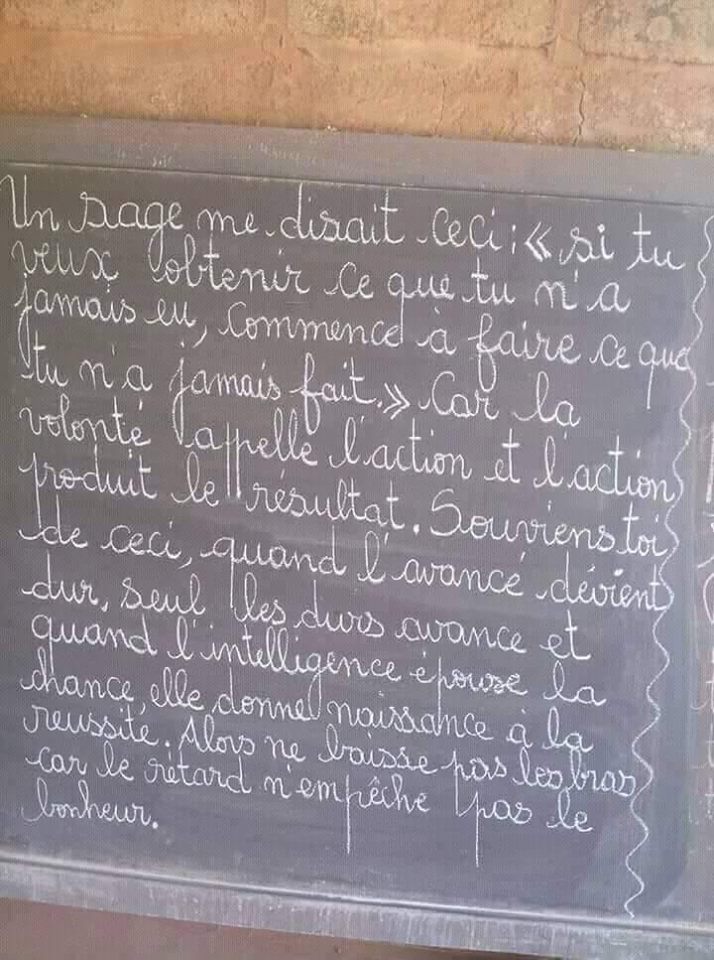 Un sage me disait ceci : « si tu
veux obtenir ce que tu n'a
jamais eu, commence à faire ce que
tu n'a jamais fait. » Car la
volonté appelle l'action et l'action
produit le résultat. Souviens toi
de ceci, quand l'avancé dévient
dur, seul les durs avance et
quand l'intelligence épouse la
chance, elle donne naissance à la
reussite. Alors ne baisse pas les bras
car le rétard n'empêche pas le
bonheur.